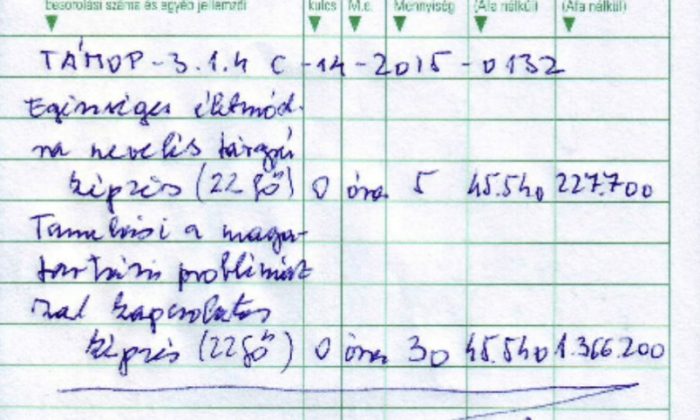 besorolási száma és egyéb jellemzői kulcs M.e. Mennyiség (Áfa nélkül) (Áfa nélkül)
TÁMOP-3.1.4 C-14-2015-0132
Egészséges életmód-
ra nevelés tárgyú
képzés (22 fő) 0 óra 5 45.540 227.700
Tanulási a maga-
tartási problémák
kal kapcsolatos
képzés (22 fő) 0 óra 30 45.540 1.366.200